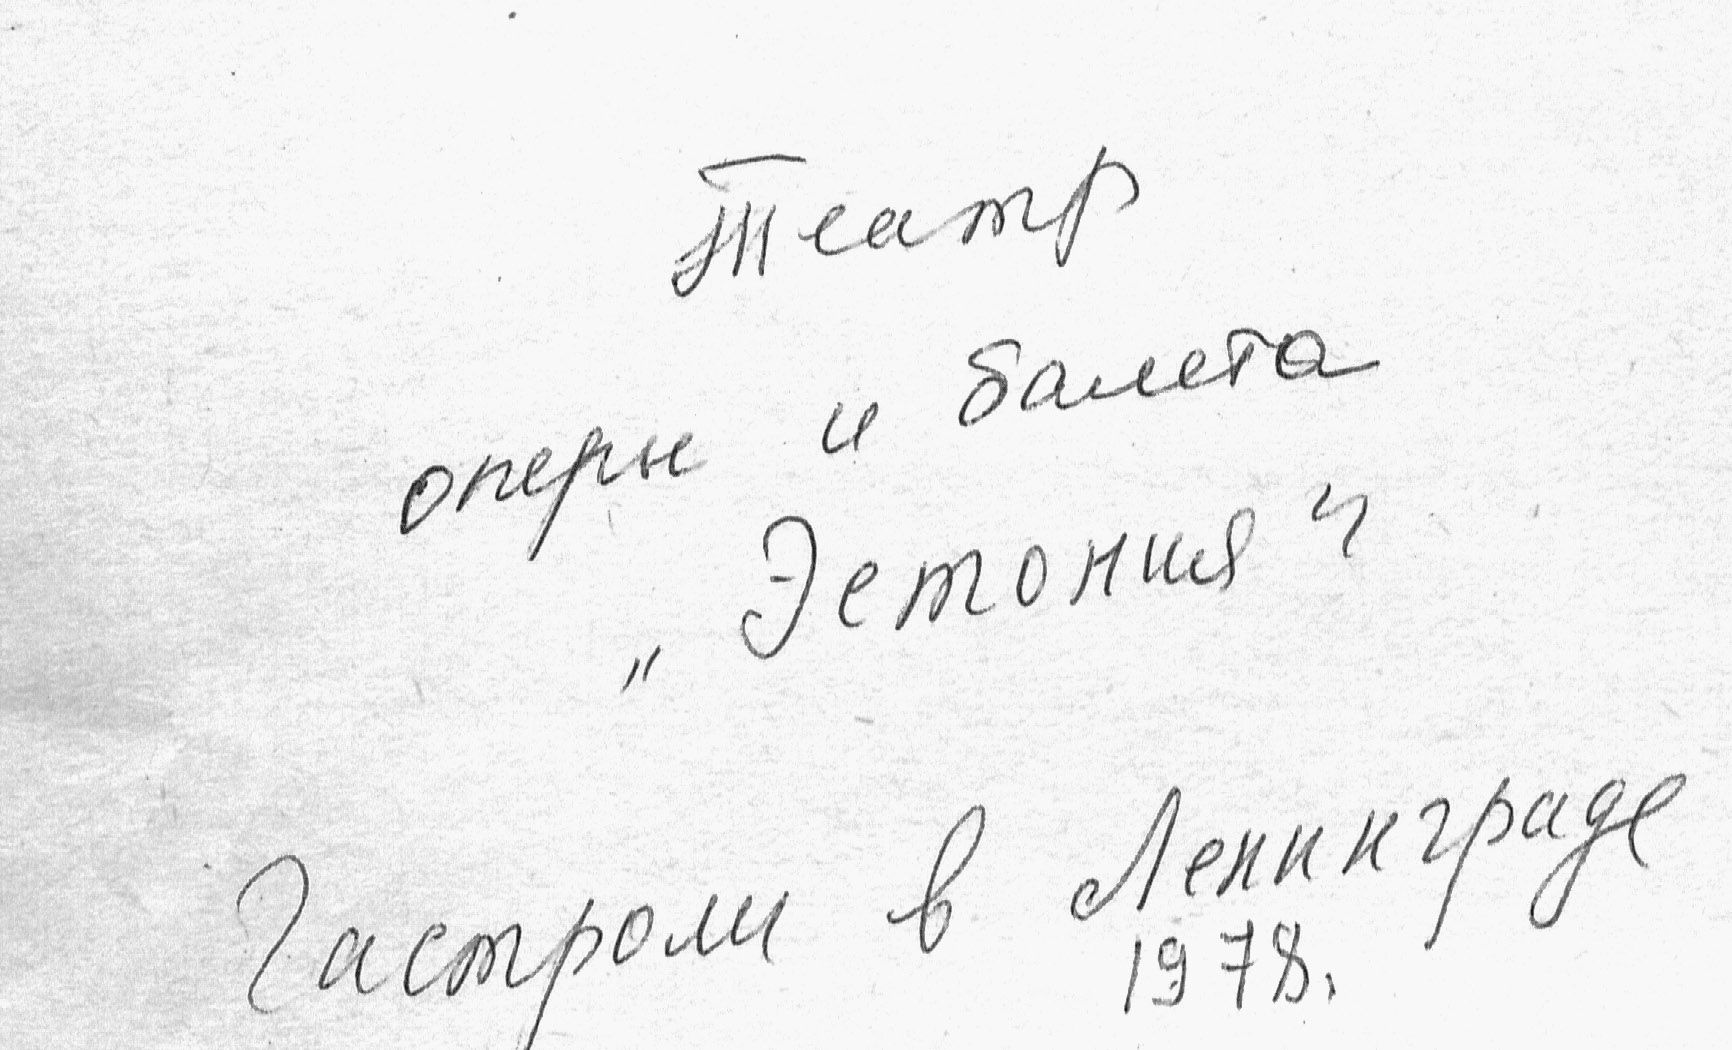 Театр
оперы и балета
„Эстония"
Гастроли в Ленинграде
1978.